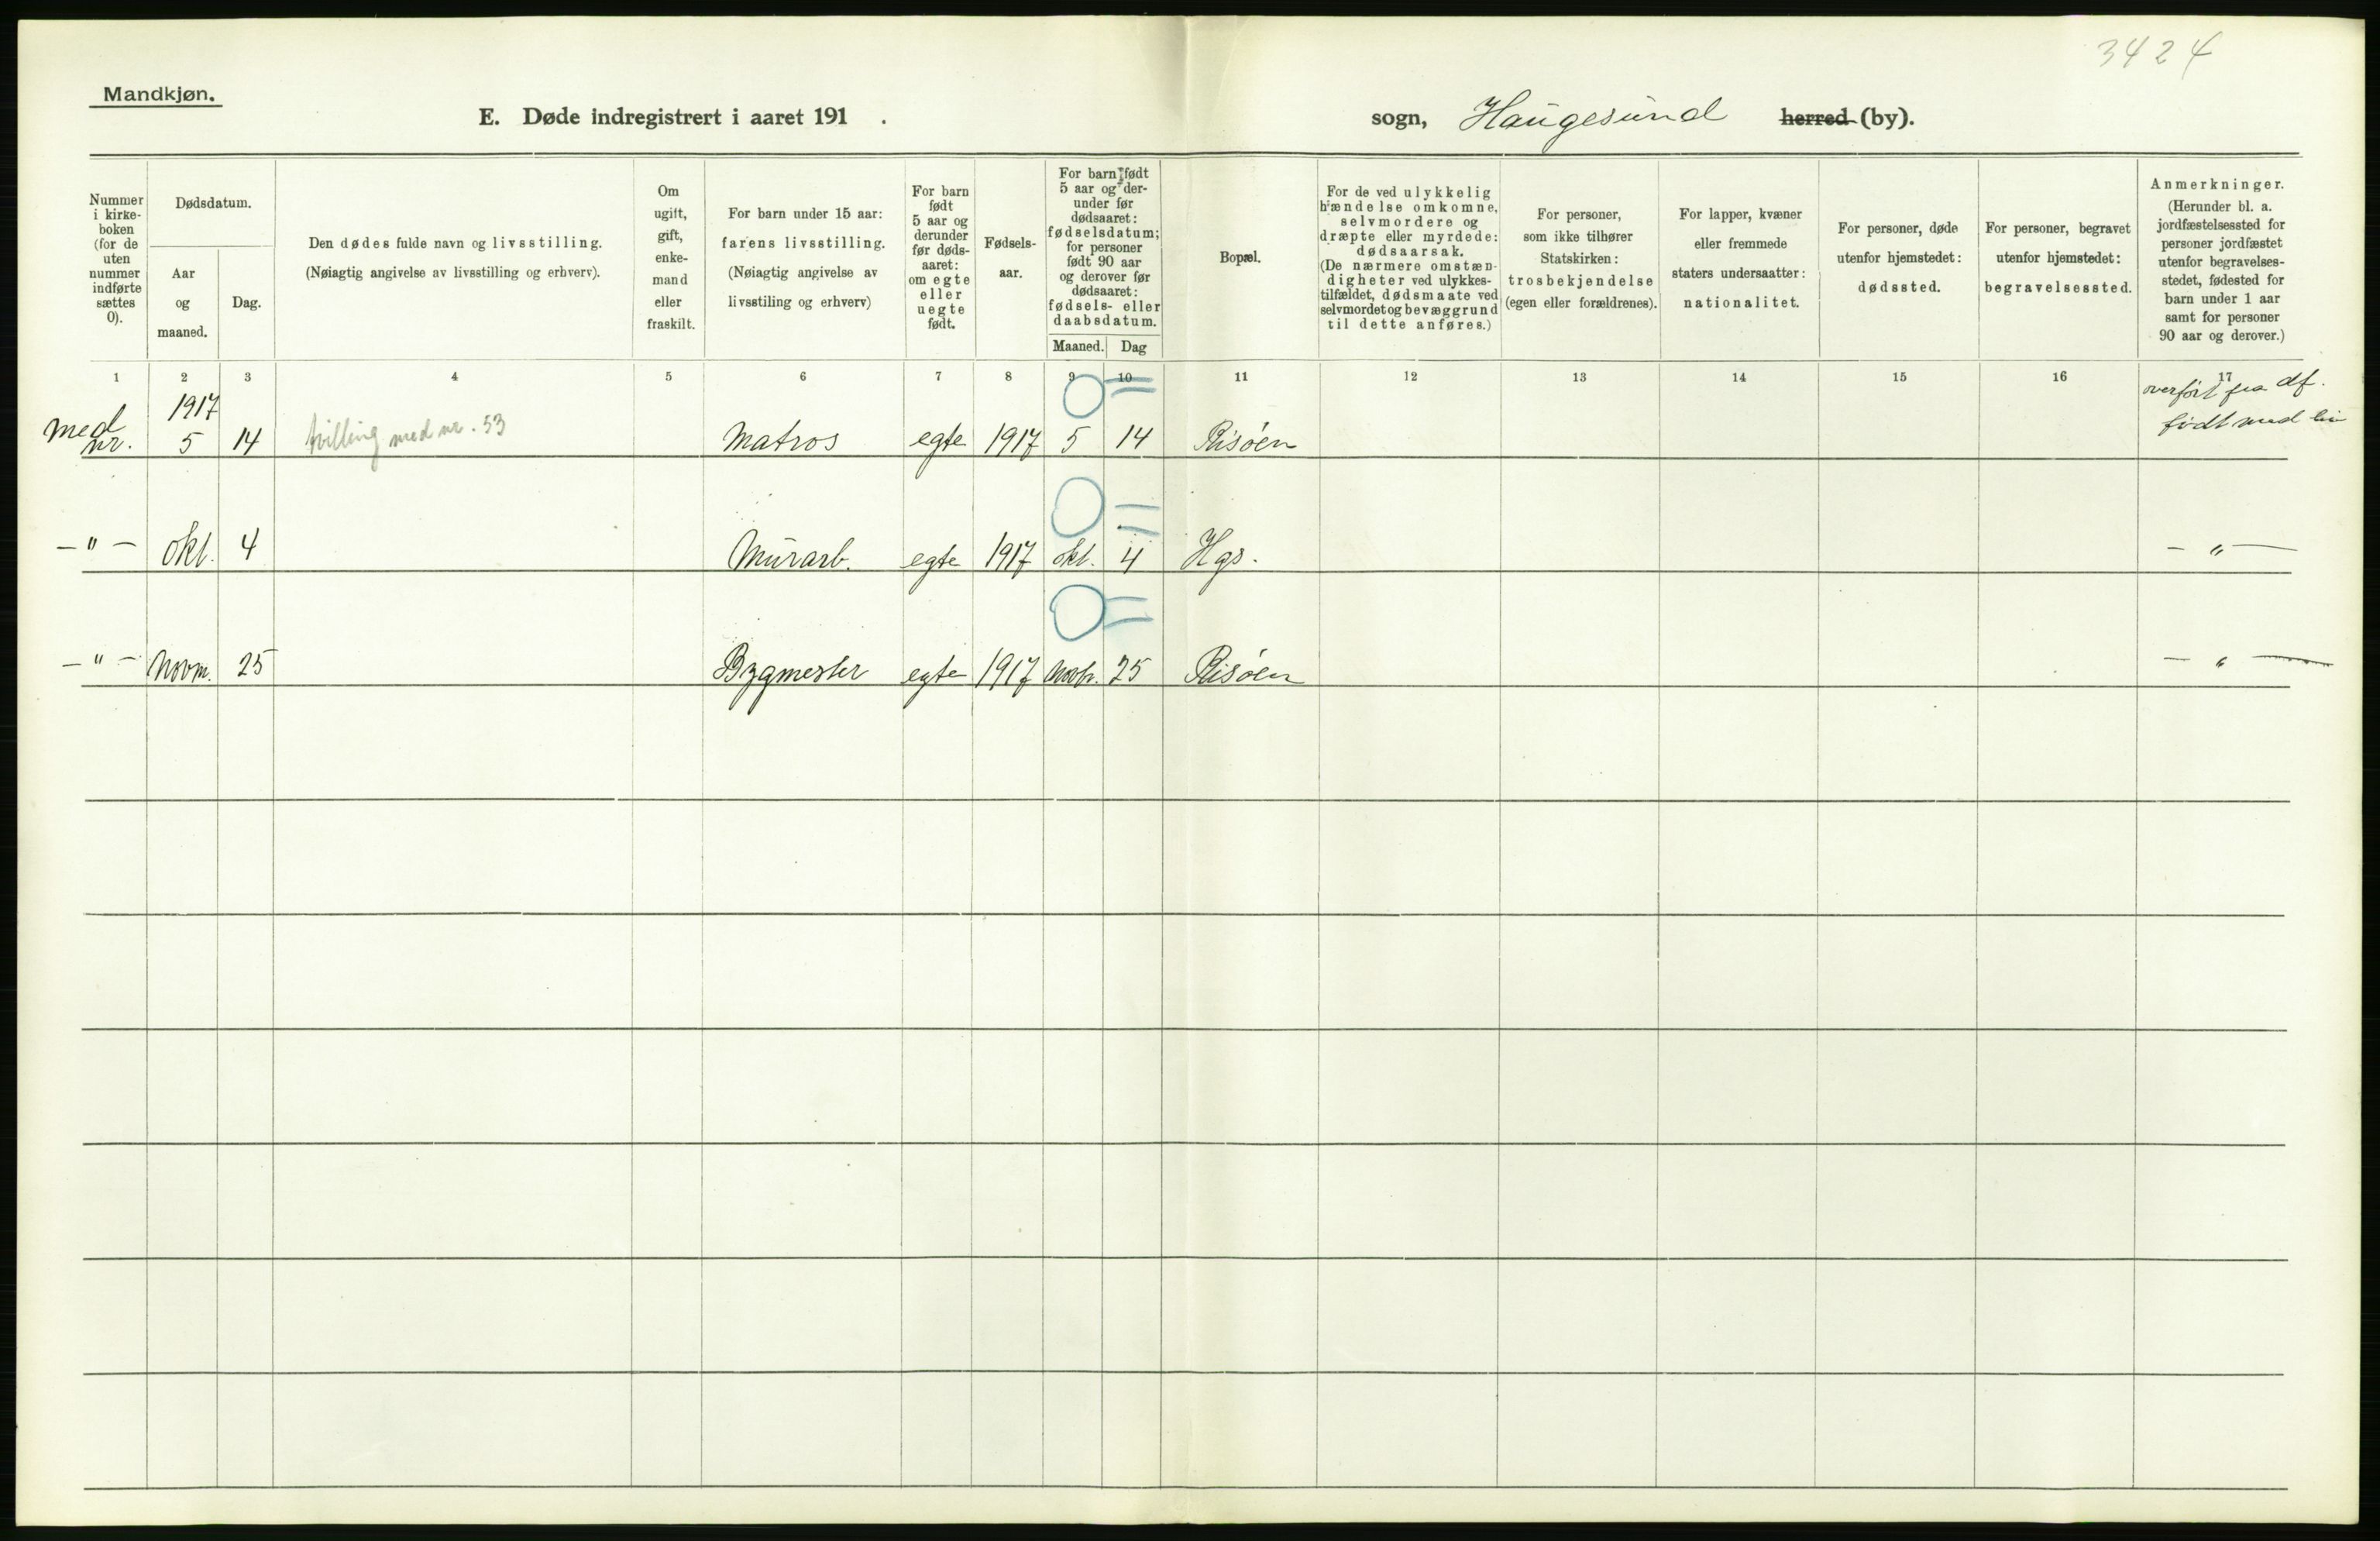 3424
Mandkjøn.
E. Døde indregistrert i aaret 191 .
sogn, Haugesund herred (by).
Nummer
i kirke-
boken
(for de
uten
nummer
indførte
sættes
0).
Dødsdatum.
Aar
og
maaned.
Dag.
Den dødes fulde navn og livsstilling.
(Nøiagtig angivelse av livsstilling og erhverv).
Om
ugift,
gift,
enke-
mand
eller
fraskilt.
For barn under 15 aar:
farens livsstilling.
(Nøiagtig angivelse av
livsstiling og erhverv)
For barn
født
5 aar og
derunder
før døds-
aaret:
om egte
eller
uegte
født.
Fødsels-
aar.
For barn født
5 aar og der-
under før
dødsaaret:
fødselsdatum;
for personer
født 90 aar
og derover før
dødsaaret:
fødsels- eller
daabsdatum.
Maaned. Dag
Bopæl.
For de ved ulykkelig
hændelse omkomne,
selvmordere og
dræpte eller myrdede:
dødsaarsak.
(De nærmere omstæn-
digheter ved ulykkes-
tilfældet, dødsmaate ved
selvmordet og bevæggrund
til dette anføres.)
For personer,
som ikke tilhører
Statskirken:
trosbekjendelse
(egen eller forældrenes).
For lapper, kvæner
eller fremmede
staters undersaatter:
nationalitet.
For personer, døde
utenfor hjemstedet:
dødssted.
For personer, begravet
utenfor hjemstedet:
begravelsessted.
Anmerkninger.
(Herunder bl. a.
jordfæstelsessted for
personer jordfæstet
utenfor begravelses-
stedet, fødested for
barn under 1 aar
samt for personer
90 aar og derover.)
1 2 3 4 5 6 7 8 9 10 11 12 13 14 15 16 17
1917
overført fra df.
født med liv
med
nr. 5 14 tvilling med nr. 53 Matros egte 1917 5 14 Risøen
- " - Okt. 4 Murarb. egte 1917 okt. 4 Hgs. - " -
- " - Novm. 25 Bygmester egte 1917 Novbr. 25 Risøen - " -